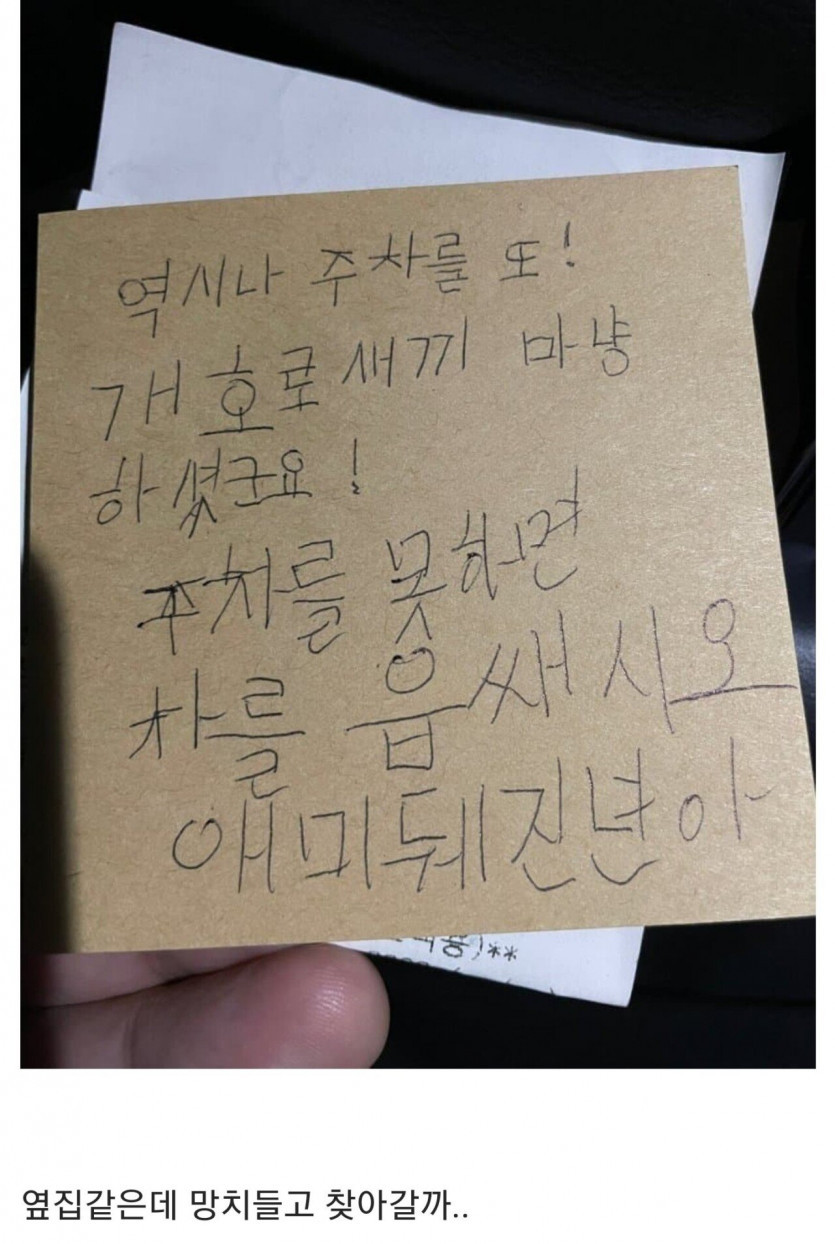 역시나 주차를 또!
개호로새끼 마냥
하셨군요!
주차를 못하면
차를 읍쌔시오
애미뒈진년아
옆집같은데 망치들고 찾아갈까..